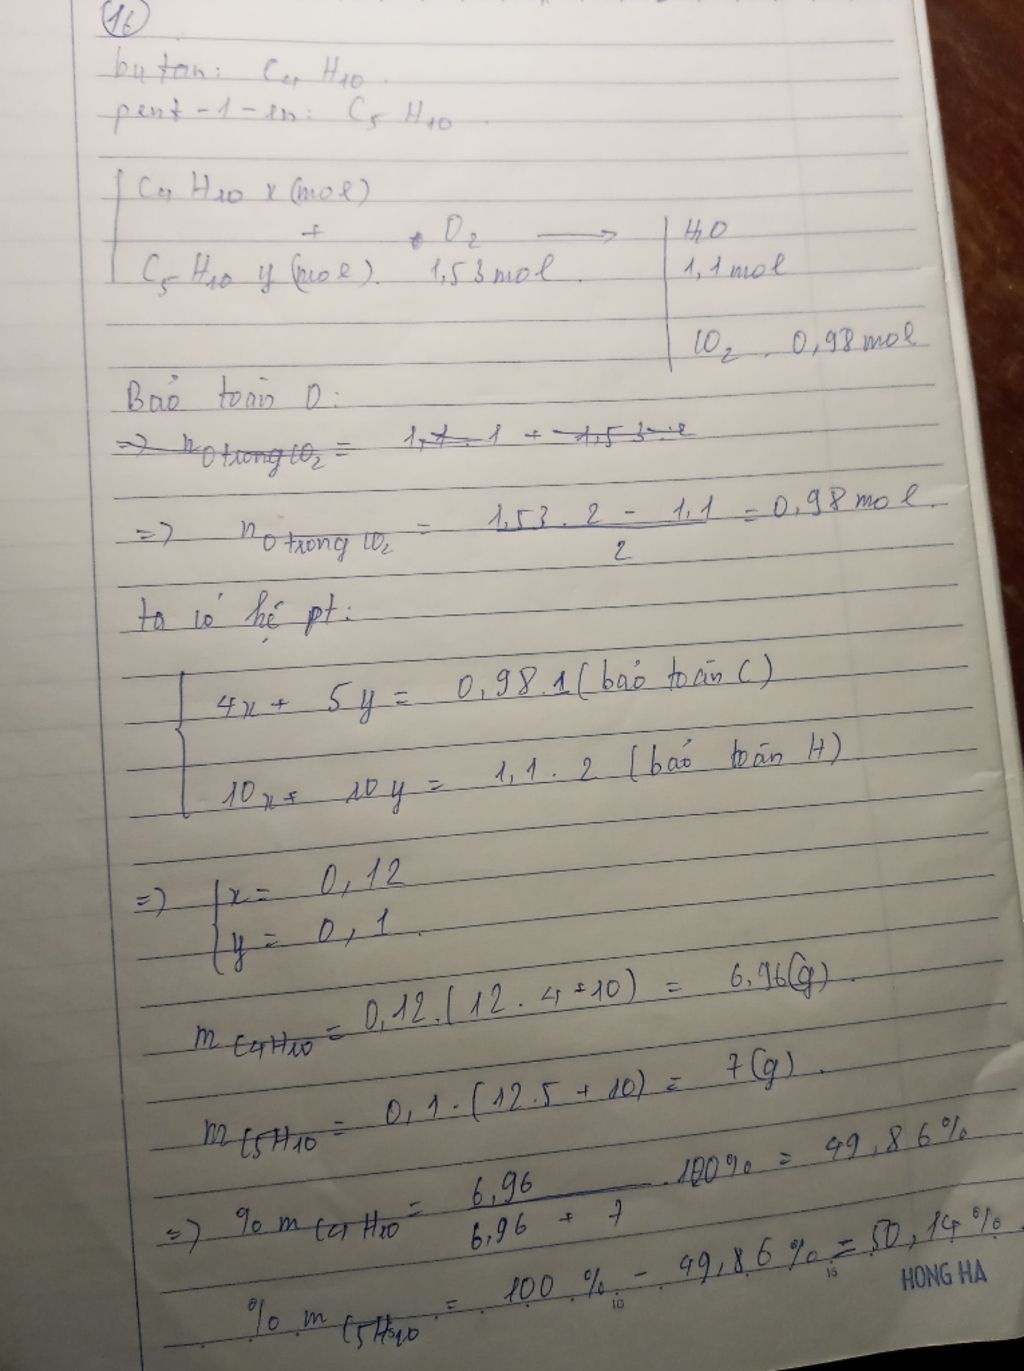 16
butan: C4H10.
pent-1-en: C5H10.
C4H10 x(mol)
+ O2 → H2O
C5H10 y(mol). 1,53mol. 1,1mol
CO2. 0,98mol
Bảo toàn O:
=> nO trong CO2 = 1,1.1 + 1,53.2
=> nO trong CO2 = 1,53.2 - 1,1 / 2 = 0,98mol.
ta có hệ pt:
4x + 5y = 0,98.1 (bảo toàn C)
10x + 10y = 1,1.2 (bảo toàn H)
=> x = 0,12
y = 0,1.
mC4H10 = 0,12.(12.4+10) = 6,96(g).
mC5H10 = 0,1.(12.5+10) = 7(g).
=> %mC4H10 = 6,96 / 6,96 + 7 .100% = 49,86%
%mC5H10 = 100% - 49,86% = 50,14%.
10 15 HONG HA